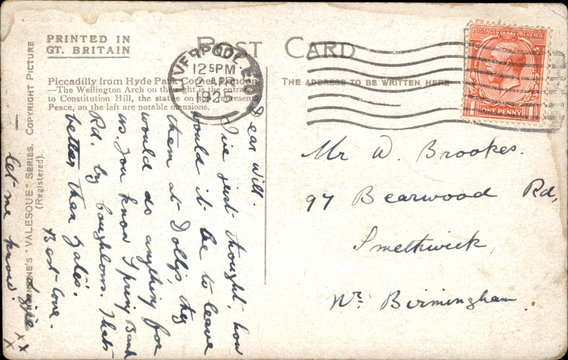 PRINTED IN
GT. BRITAIN
POST CARD
Piccadilly from Hyde Park Corner, London.
—The Wellington Arch on the right is the entrance
to Constitution Hill, the statue on
Peace, on the left are notable mansions.
THE ADDRESS TO BE WRITTEN HERE
LIVERPOOL
12 15 PM
2 APR
1925
ONE PENNY
Mr W. Brookes.
97 Bearwood Rd,
Smethwick,
Nr. Birmingham
Dear Will.
I've just thought, how
would it be to leave
them at Dollys they
would do anything for
us, you know Spring Bank
Rd. by Thats
better than
Best love.
— let me know.
x x
x
"VALESQUE" SERIES. COPYRIGHT PICTURE
(Registered).